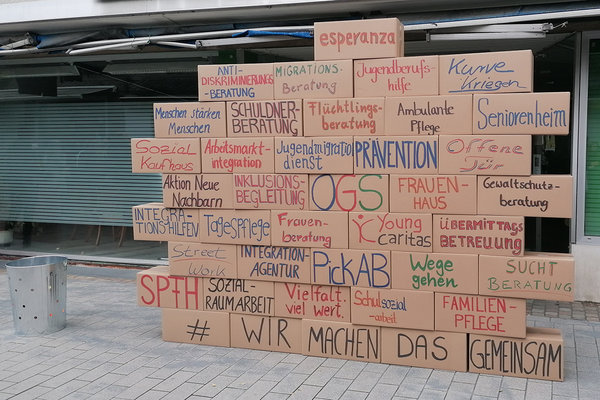 esperanza
ANTI-
DISKRIMINIERUNGS
BERATUNG
MIGRATIONS-
Beratung
Jugendberufs-
hilfe
Kurve
Kriegen
Menschen stärken
Menschen
SCHULDNER-
BERATUNG
Flüchtlings-
beratung
Ambulante
Pflege
Seniorenheim
Sozial
Kaufhaus
Arbeitsmarkt-
integration
Jugendmigrations
dienst
PRÄVENTION
Offene
Tür
Aktion Neue
Nachbarn
INKLUSIONS-
BEGLEITUNG
OGS
FRAUEN-
HAUS
Gewaltschutz-
beratung
INTEGRA-
TIONSHILFEN
TAGESPFLEGE
Frauen-
Beratung
Young
caritas
ÜBERMITTAGS
BETREUUNG
Street
Work
INTEGRATION-
AGENTUR
PicKAB
Wege
gehen
SUCHT
BERATUNG
SPFH
SOZIAL-
RAUMARBEIT
Vielfalt.
viel wert.
Schulsozial
-arbeit
FAMILIEN-
PFLEGE
# WIR MACHEN DAS GEMEINSAM